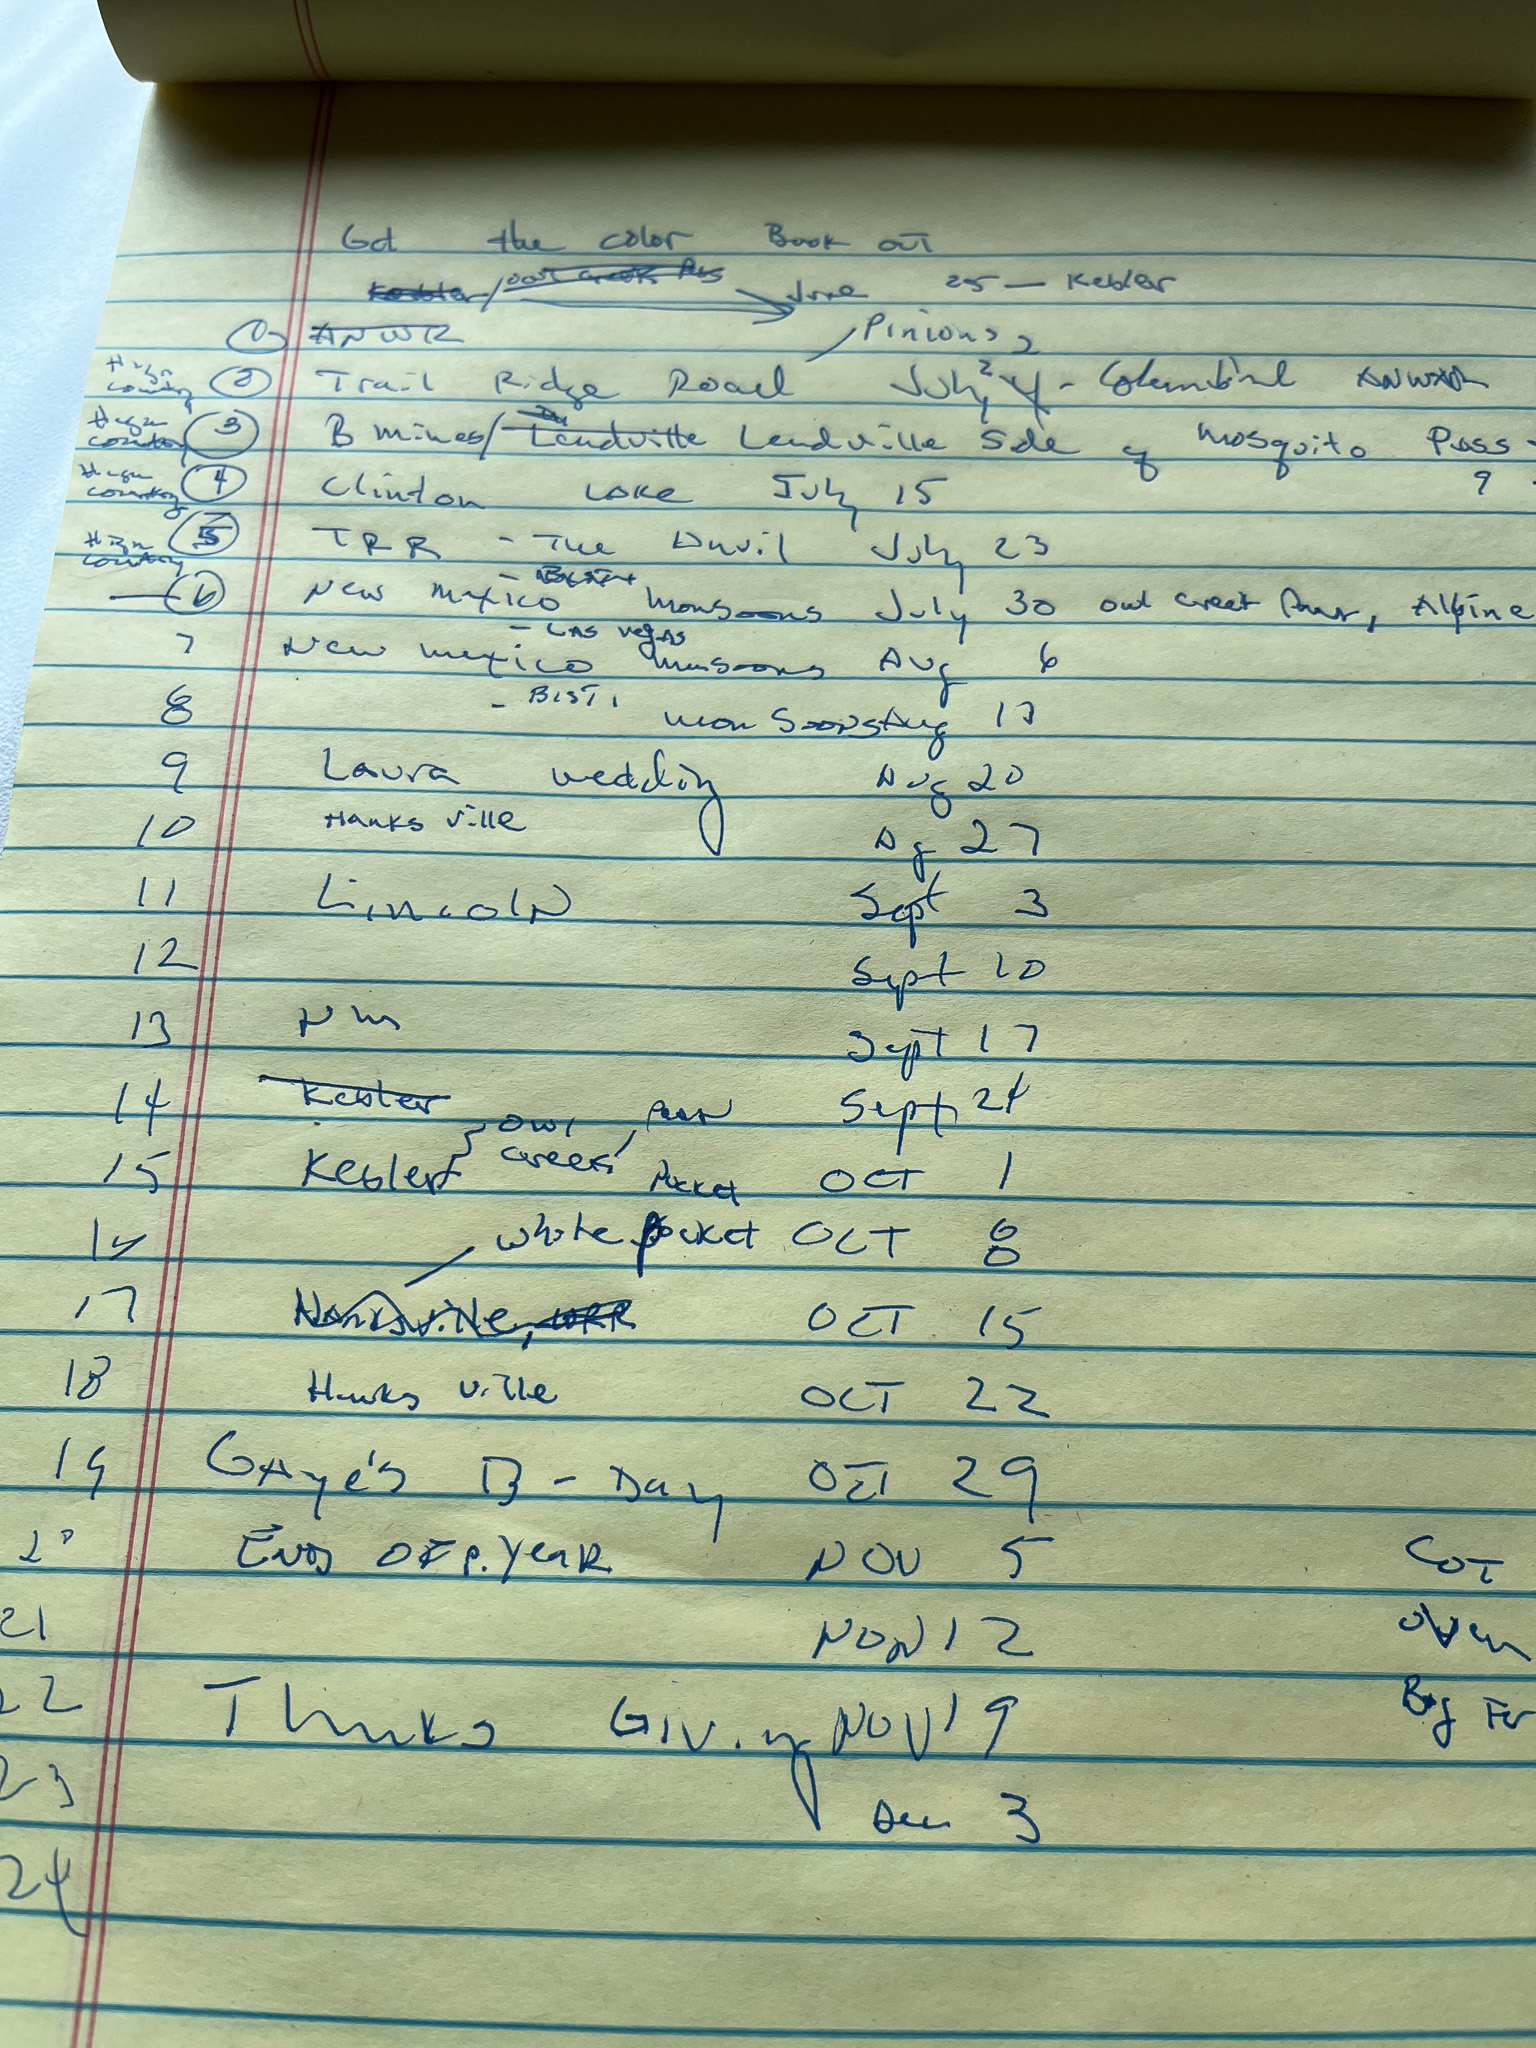 Get the color Book out
Kebler / Owl Creek Pass June 25 — Kebler
1 ANWR Pinions
High country 2 Trail Ridge Road July 2
High country 3 B mines/ Leadville Leadville Side of Mosquito Pass - 9
High country 4 Clinton Lake July 15
High country 5 TRR - The Anvil July 23
6 New Mexico - Monsoons July 30 owl creek Pass, Alpine
7 New Mexico - Las Vegas Monsoons Aug 6
8 - BISTI monsoons Aug 13
9 Laura wedding Aug 20
10 Hanksville Ag 27
11 Lincoln Sept 3
12 Sept 10
13 Nm Sept 17
14 Kebler Sept 24
15 Kebler owl creek, Pass Pocket Oct 1
16 white Pocket Oct 8
17 Hanksville, Oct 15
18 Hanksville Oct 22
19 Gaye's B-Day Oct 29
20 End of p. year Nov 5 COT
21 Nov 12
22 Thanks Giving Nov 19 Big
23 Dec 3
24